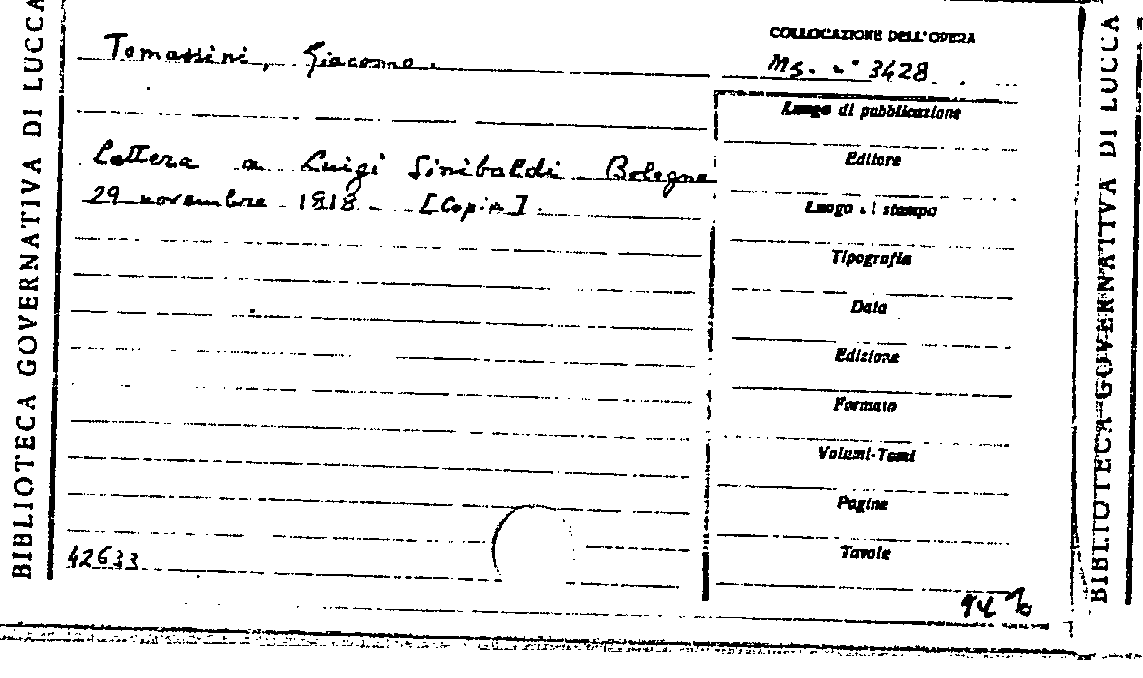 BIBLIOTECA GOVERNATIVA DI LUCCA
Tomassini, Giacomo.
Lettera a Luigi Sinibaldi Bologna
29 novembre 1818 - [Copia].
42633
COLLOCAZIONE DELL'OPERA
Ms. n° 3428
Luogo di pubblicazione
Editore
Luogo di stampa
Tipografia
Data
Edizione
Formato
Volumi-Tomi
Pagine
Tavole
BIBLIOTECA GOVERNATIVA DI LUCCA